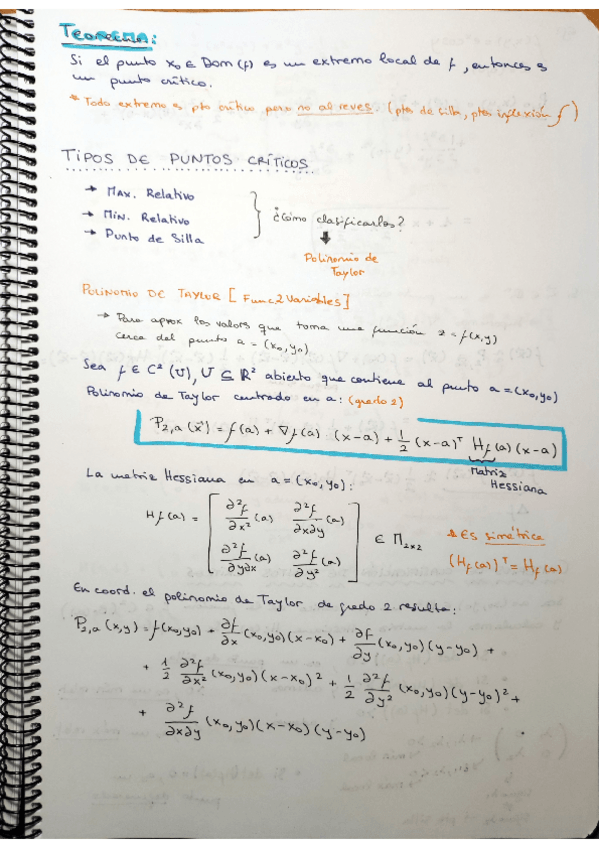 Teorema:
Si el punto x₀ ∈ Dom(f) es un extremo local de f, entonces es
un punto crítico.
* Todo extremo es pto crítico pero no al reves. (ptos de silla, ptos inflexión ∫)
TIPOS DE PUNTOS CRÍTICOS
→ Max. Relativo
→ Mín. Relativo
→ Punto de Silla
¿Cómo clasificarlos?
Polinomio de
Taylor
POLINOMIO DE TAYLOR [Func 2 Variables]
→ Para aprox los valors que toma una función z = f(x,y)
cerca del punto a = (x₀, y₀)
Sea f ∈ C² (U), U ⊆ R² abierto que contiene al punto a = (x₀, y₀)
Polinomio de Taylor centrado en a: (grado 2)
P₂,ₐ (x⃗) = f(a) + ∇f(a) (x-a) + 1/2 (x-a)ᵀ H_f (a) (x-a)
Matriz
Hessiana
La matriz Hessiana en a = (x₀, y₀):
H_f (a) = [ ∂²f/∂x² (a) ∂²f/∂x∂y (a)
∂²f/∂y∂x (a) ∂²f/∂y² (a) ] ∈ M₂ₓ₂
Es simétrica
(H_f (a))ᵀ = H_f (a)
En coord. el polinomio de Taylor de grado 2 resulta:
P₂,ₐ (x,y) = f(x₀,y₀) + ∂f/∂x (x₀,y₀)(x-x₀) + ∂f/∂y (x₀,y₀)(y-y₀) +
+ 1/2 ∂²f/∂x² (x₀,y₀)(x-x₀)² + 1/2 ∂²f/∂y² (x₀,y₀)(y-y₀)² +
+ ∂²f/∂x∂y (x₀,y₀)(x-x₀)(y-y₀)